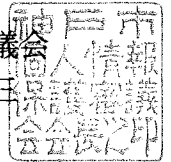 義会
神戸市
個人情報
保護審議
会会長之印